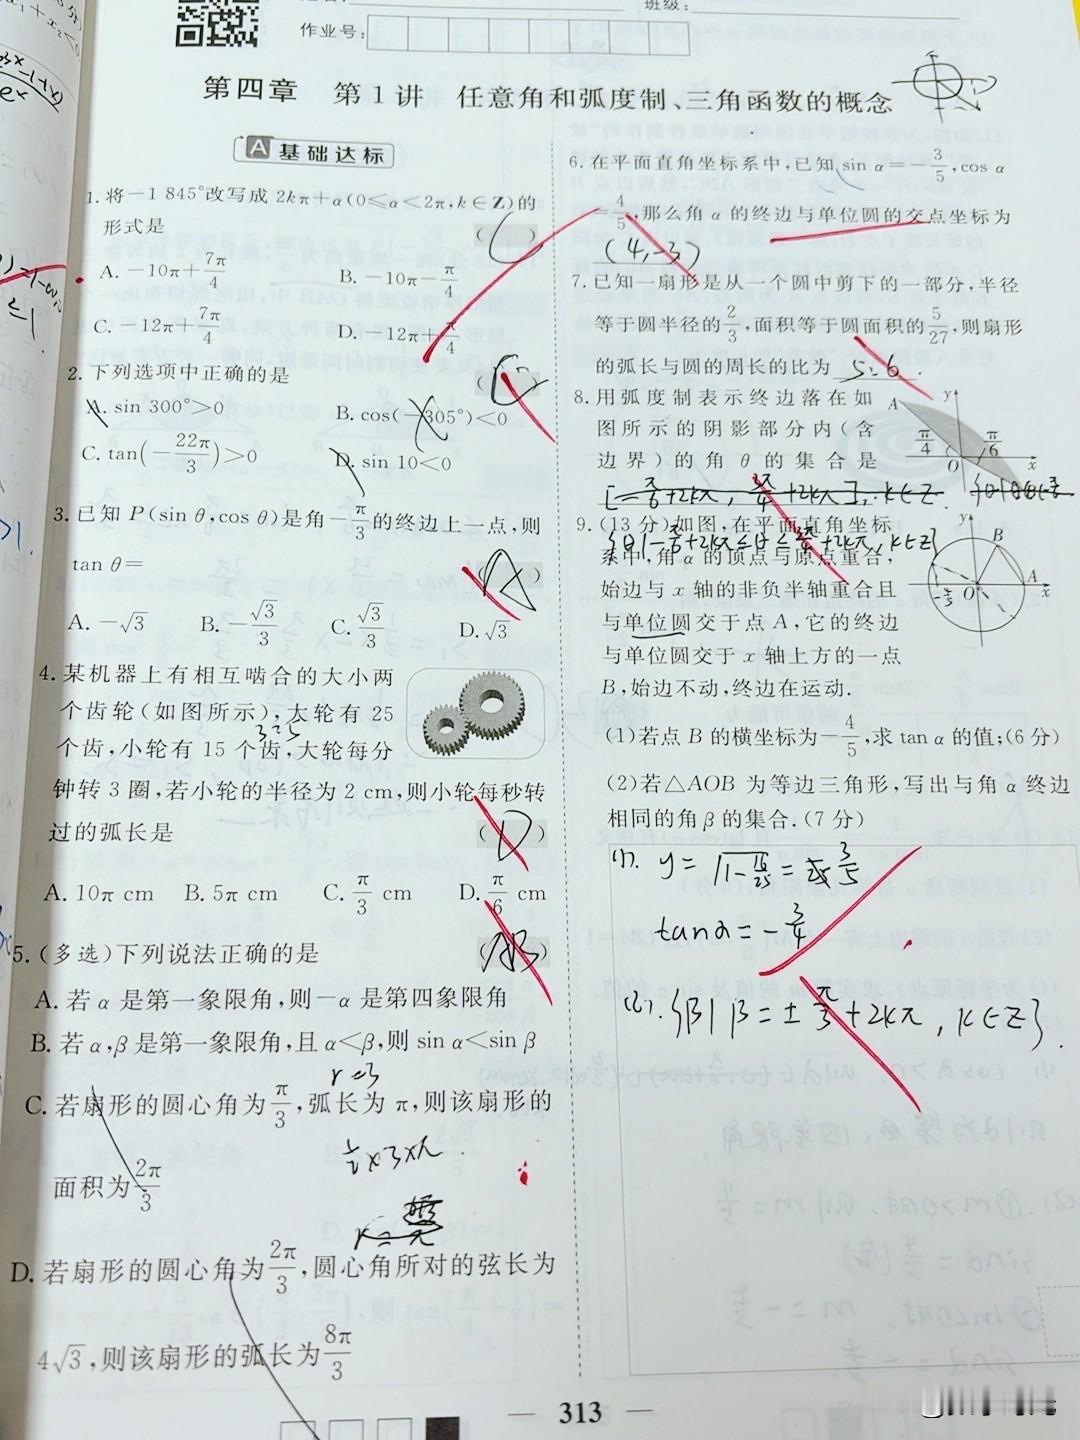 班级:
作业号:
第四章 第1讲 任意角和弧度制、三角函数的概念
A 基础达标
1.将-1 845°改写成2kπ+α(0≤α<2π,k∈Z)的
形式是 ( C )
A. -10π+7π/4 B. -10π-π/4
C. -12π+7π/4 D. -12π+π/4
2.下列选项中正确的是 ( )
A. sin 300°>0 B. cos(-305°)<0
C. tan(-22π/3)>0 D. sin 10<0
3.已知P(sin θ,cos θ)是角-π/3的终边上一点,则
tan θ= ( A )
A. -√3 B. -√3/3 C. √3/3 D. √3
4.某机器上有相互啮合的大小两
个齿轮(如图所示),大轮有25
3:5
个齿,小轮有15个齿,大轮每分
钟转3圈,若小轮的半径为2 cm,则小轮每秒转
过的弧长是 ( D )
A. 10π cm B. 5π cm C. π/3 cm D. π/6 cm
5.(多选)下列说法正确的是 ( AB )
A. 若α是第一象限角,则-α是第四象限角
B. 若α,β是第一象限角,且α<β,则sin α<sin β
r=3
C. 若扇形的圆心角为π/3,弧长为π,则该扇形的
1/2×3×π
面积为2π/3
D. 若扇形的圆心角为2π/3,圆心角所对的弦长为
4√3,则该扇形的弧长为8π/3
6.在平面直角坐标系中,已知sin α=-3/5,cos α
=4/5,那么角α的终边与单位圆的交点坐标为
(4,-3)
7.已知一扇形是从一个圆中剪下的一部分,半径
等于圆半径的2/3,面积等于圆面积的5/27,则扇形
的弧长与圆的周长的比为 5:6 .
8.用弧度制表示终边落在如
图所示的阴影部分内(含
边界)的角θ的集合是
A y π/4 π/6 O x
[-π/6+2kπ, 3π/4+2kπ], k∈Z
{θ|-π/6+2kπ≤θ≤3π/4+2kπ, k∈Z}
9.(13分)如图,在平面直角坐标
系中,角α的顶点与原点重合,
始边与x轴的非负半轴重合且
与单位圆交于点A,它的终边
与单位圆交于x轴上方的一点
B,始边不动,终边在运动.
y B O A x
(1)若点B的横坐标为-4/5,求tan α的值;(6分)
(2)若△AOB为等边三角形,写出与角α终边
相同的角β的集合.(7分)
(1). y=√1-16/25=3/5
tanα=-3/4
(2). {β|β=±π/3+2kπ, k∈Z}.
— 313 —